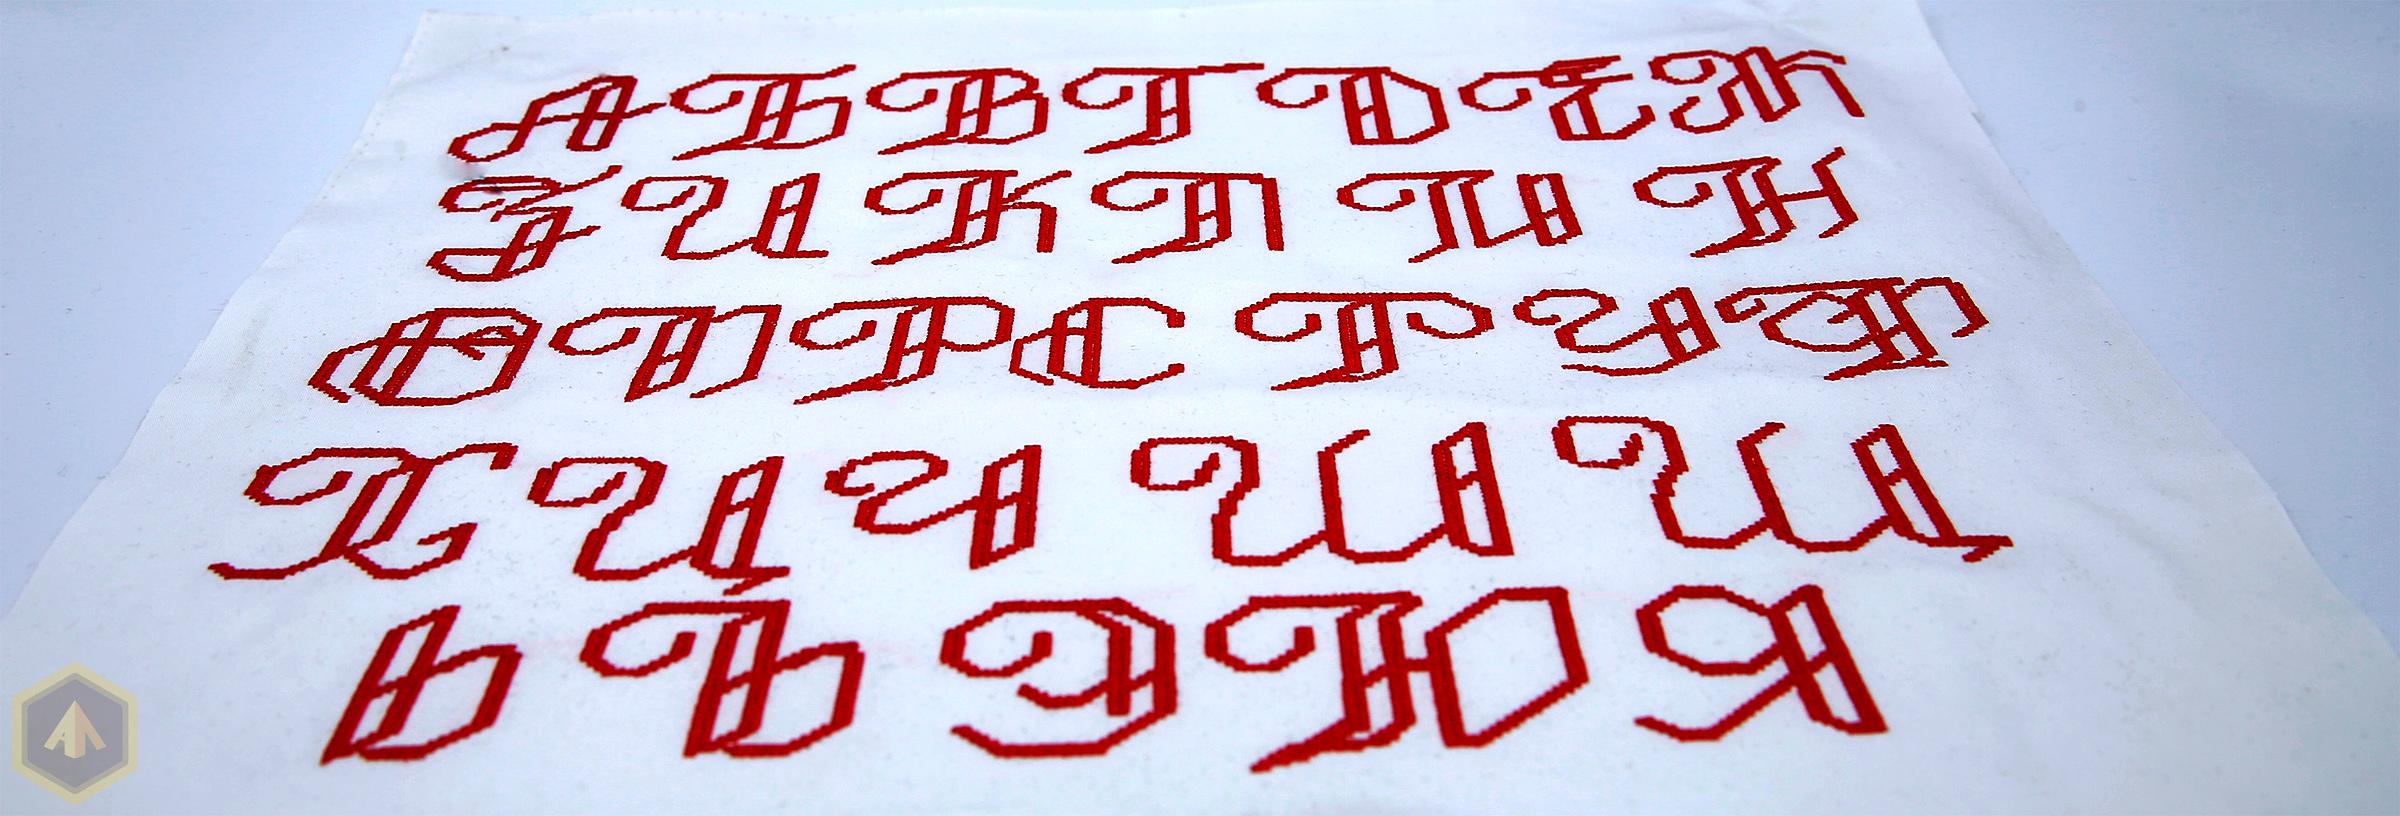 А Б В Г Д Е Ж
З И К Л М Н
О П Р С Т У Ф
Х Ц Ч Ш Щ
Ь Ъ Э Ю Я